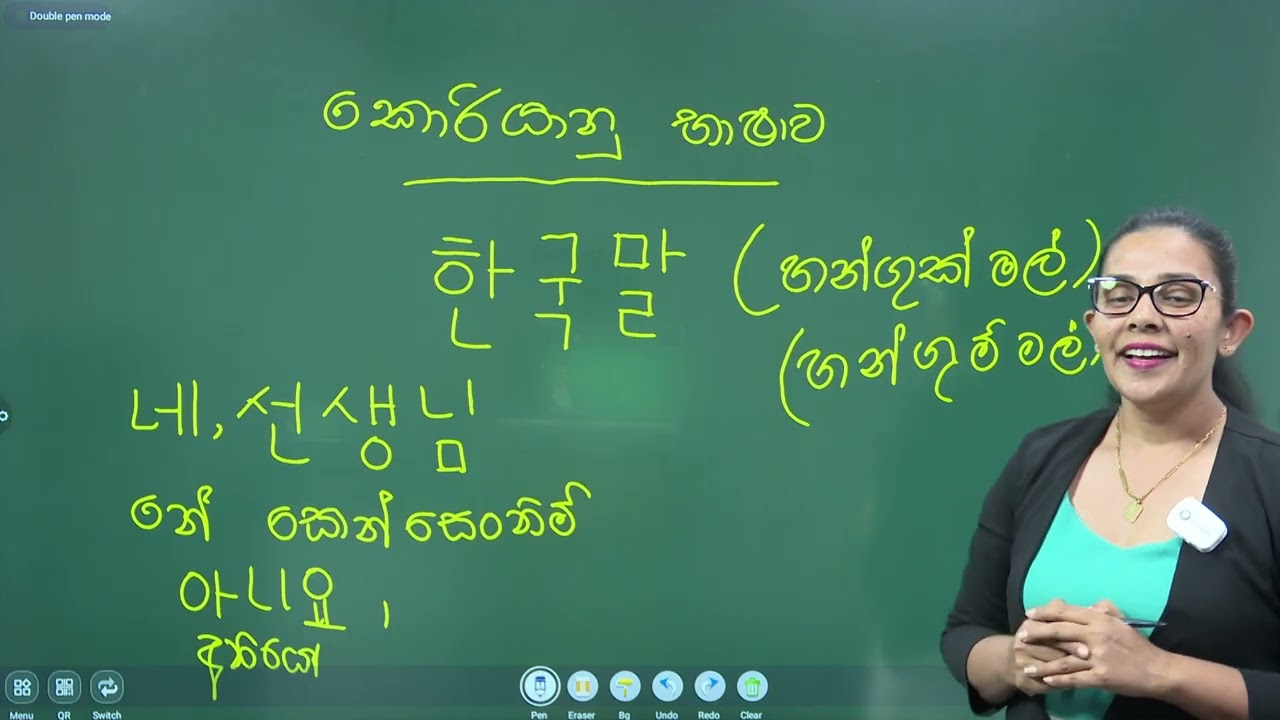 Double pen mode
කොරියානු භාෂාව
한국말 (හන්ගුක් මල්)
(හන්ගුම් මල්)
네, 선생님
නේ සොන්සෙංනිම්
아니요,
අනියො
Menu QR Switch Pen Eraser Bg Undo Redo Clear